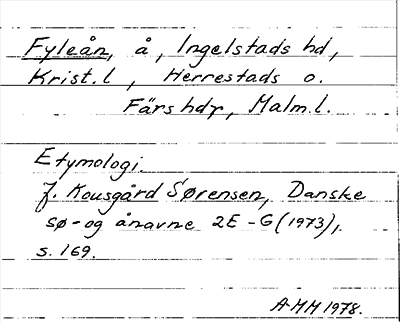 Fyleån, å, Ingelstads hd,
Krist. l, Herrestads o.
Färs hdr, Malm. l.
Etymologi.
J. Kousgård Sørensen, Danske
sø- og ånavne 2E-G (1973),
s. 169.
AMM 1978.